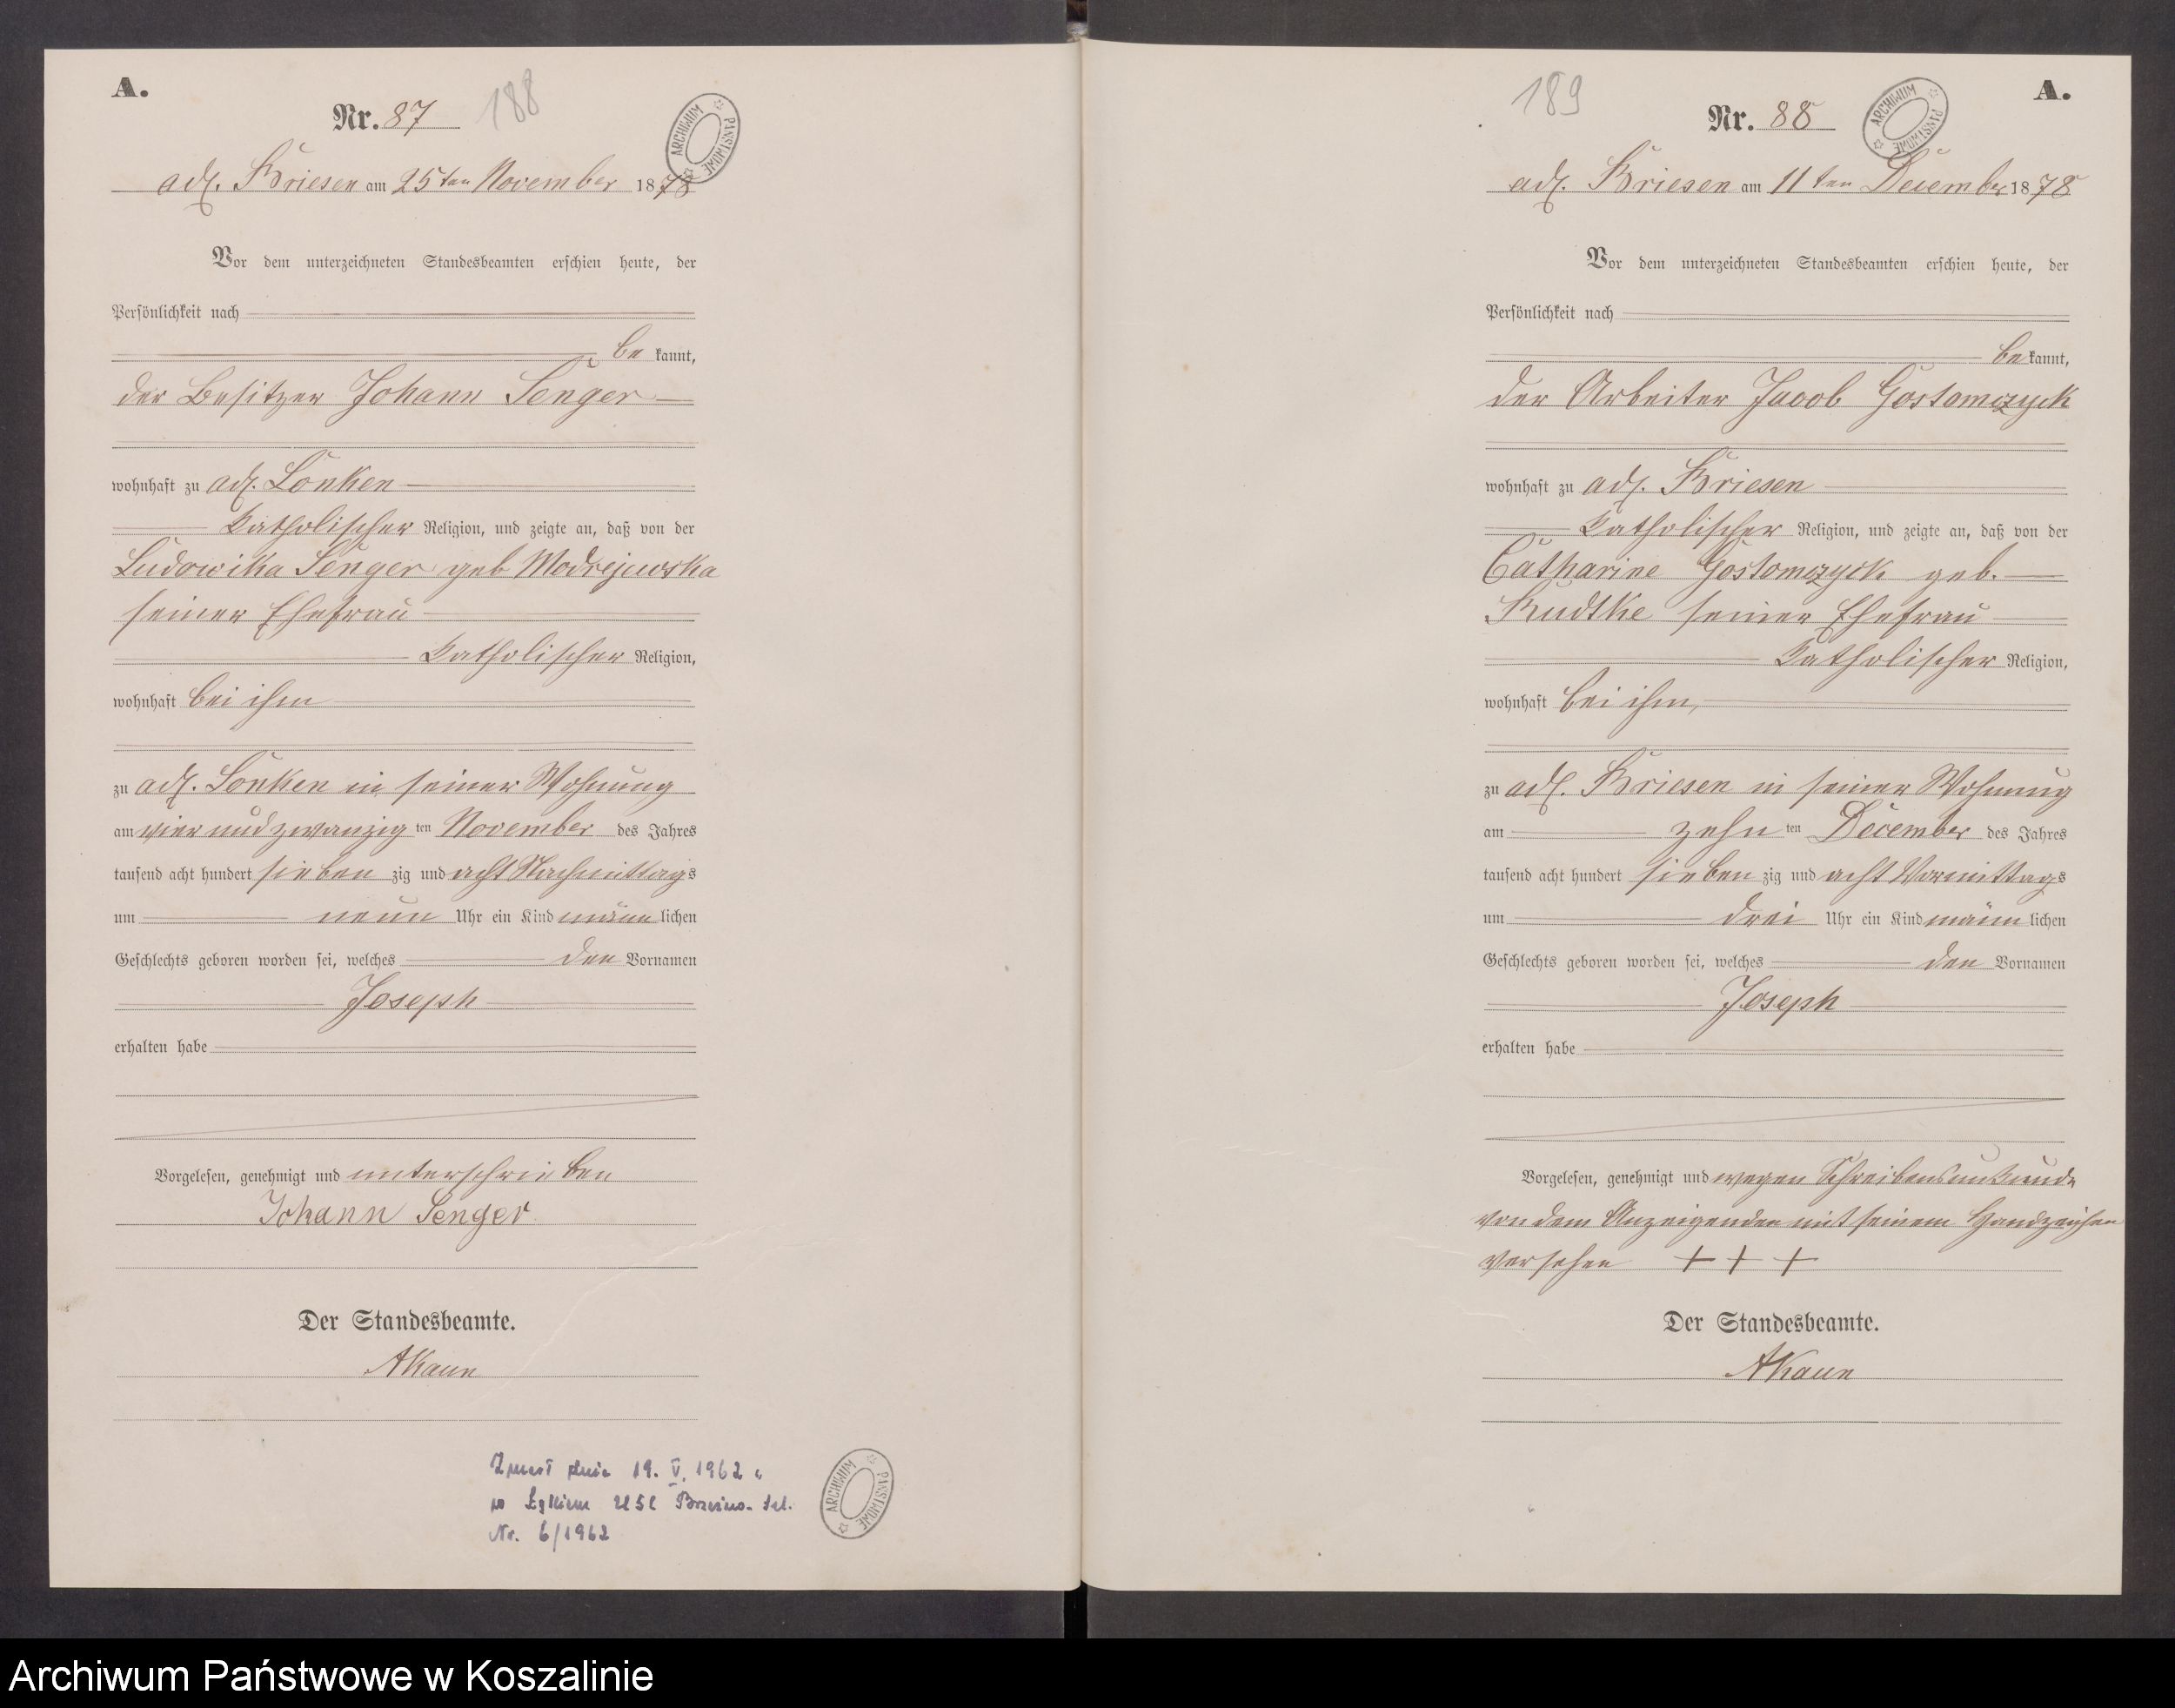 A.
Nr. 87 188
ARCHIWUM PAŃSTWOWE
adl. Briesen am 25ten November 1878
Vor dem unterzeichneten Standesbeamten erschien heute, der
Persönlichkeit nach
be kannt,
der Besitzer Johann Senger
wohnhaft zu adl. Lonken
katholischer Religion, und zeigte an, daß von der
Ludowika Senger geb Modrejewska
seiner Ehefrau
katholischer Religion,
wohnhaft bei ihm
zu adl. Lonken in seiner Wohnung
am vier und zwanzig ten November des Jahres
tausend acht hundert sieben zig und acht Nachmittags
um neun Uhr ein Kind männ lichen
Geschlechts geboren worden sei, welches den Vornamen
Joseph
erhalten habe
Vorgelesen, genehmigt und unterschrieben
Johann Senger
Der Standesbeamte.
AKaun
Zmarł dnia 19. V. 1962
Nr. 6/1962
ARCHIWUM PAŃSTWOWE
189 A.
Nr. 88
ARCHIWUM PAŃSTWOWE
adl. Briesen am 11ten December 1878
Vor dem unterzeichneten Standesbeamten erschien heute, der
Persönlichkeit nach
be kannt,
der Arbeiter Jacob Gostomczyck
wohnhaft zu adl. Briesen
katholischer Religion, und zeigte an, daß von der
Catharine Gostomczyck geb.
Rudtke seiner Ehefrau
katholischer Religion,
wohnhaft bei ihm,
zu adl. Briesen in seiner Wohnung
am zehn ten December des Jahres
tausend acht hundert sieben zig und acht Vormittags
um drei Uhr ein Kind männ lichen
Geschlechts geboren worden sei, welches den Vornamen
Joseph
erhalten habe
Vorgelesen, genehmigt und wegen Schreibensunkunde
von dem Anzeigenden mit seinem Handzeichen
versehen + + +
Der Standesbeamte.
AKaun
Archiwum Państwowe w Koszalinie